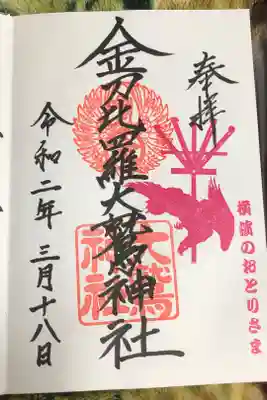 奉拝
横濱のおとりさま
金刀比羅大鷲神社
大鷲神社
令和二年三月十八日